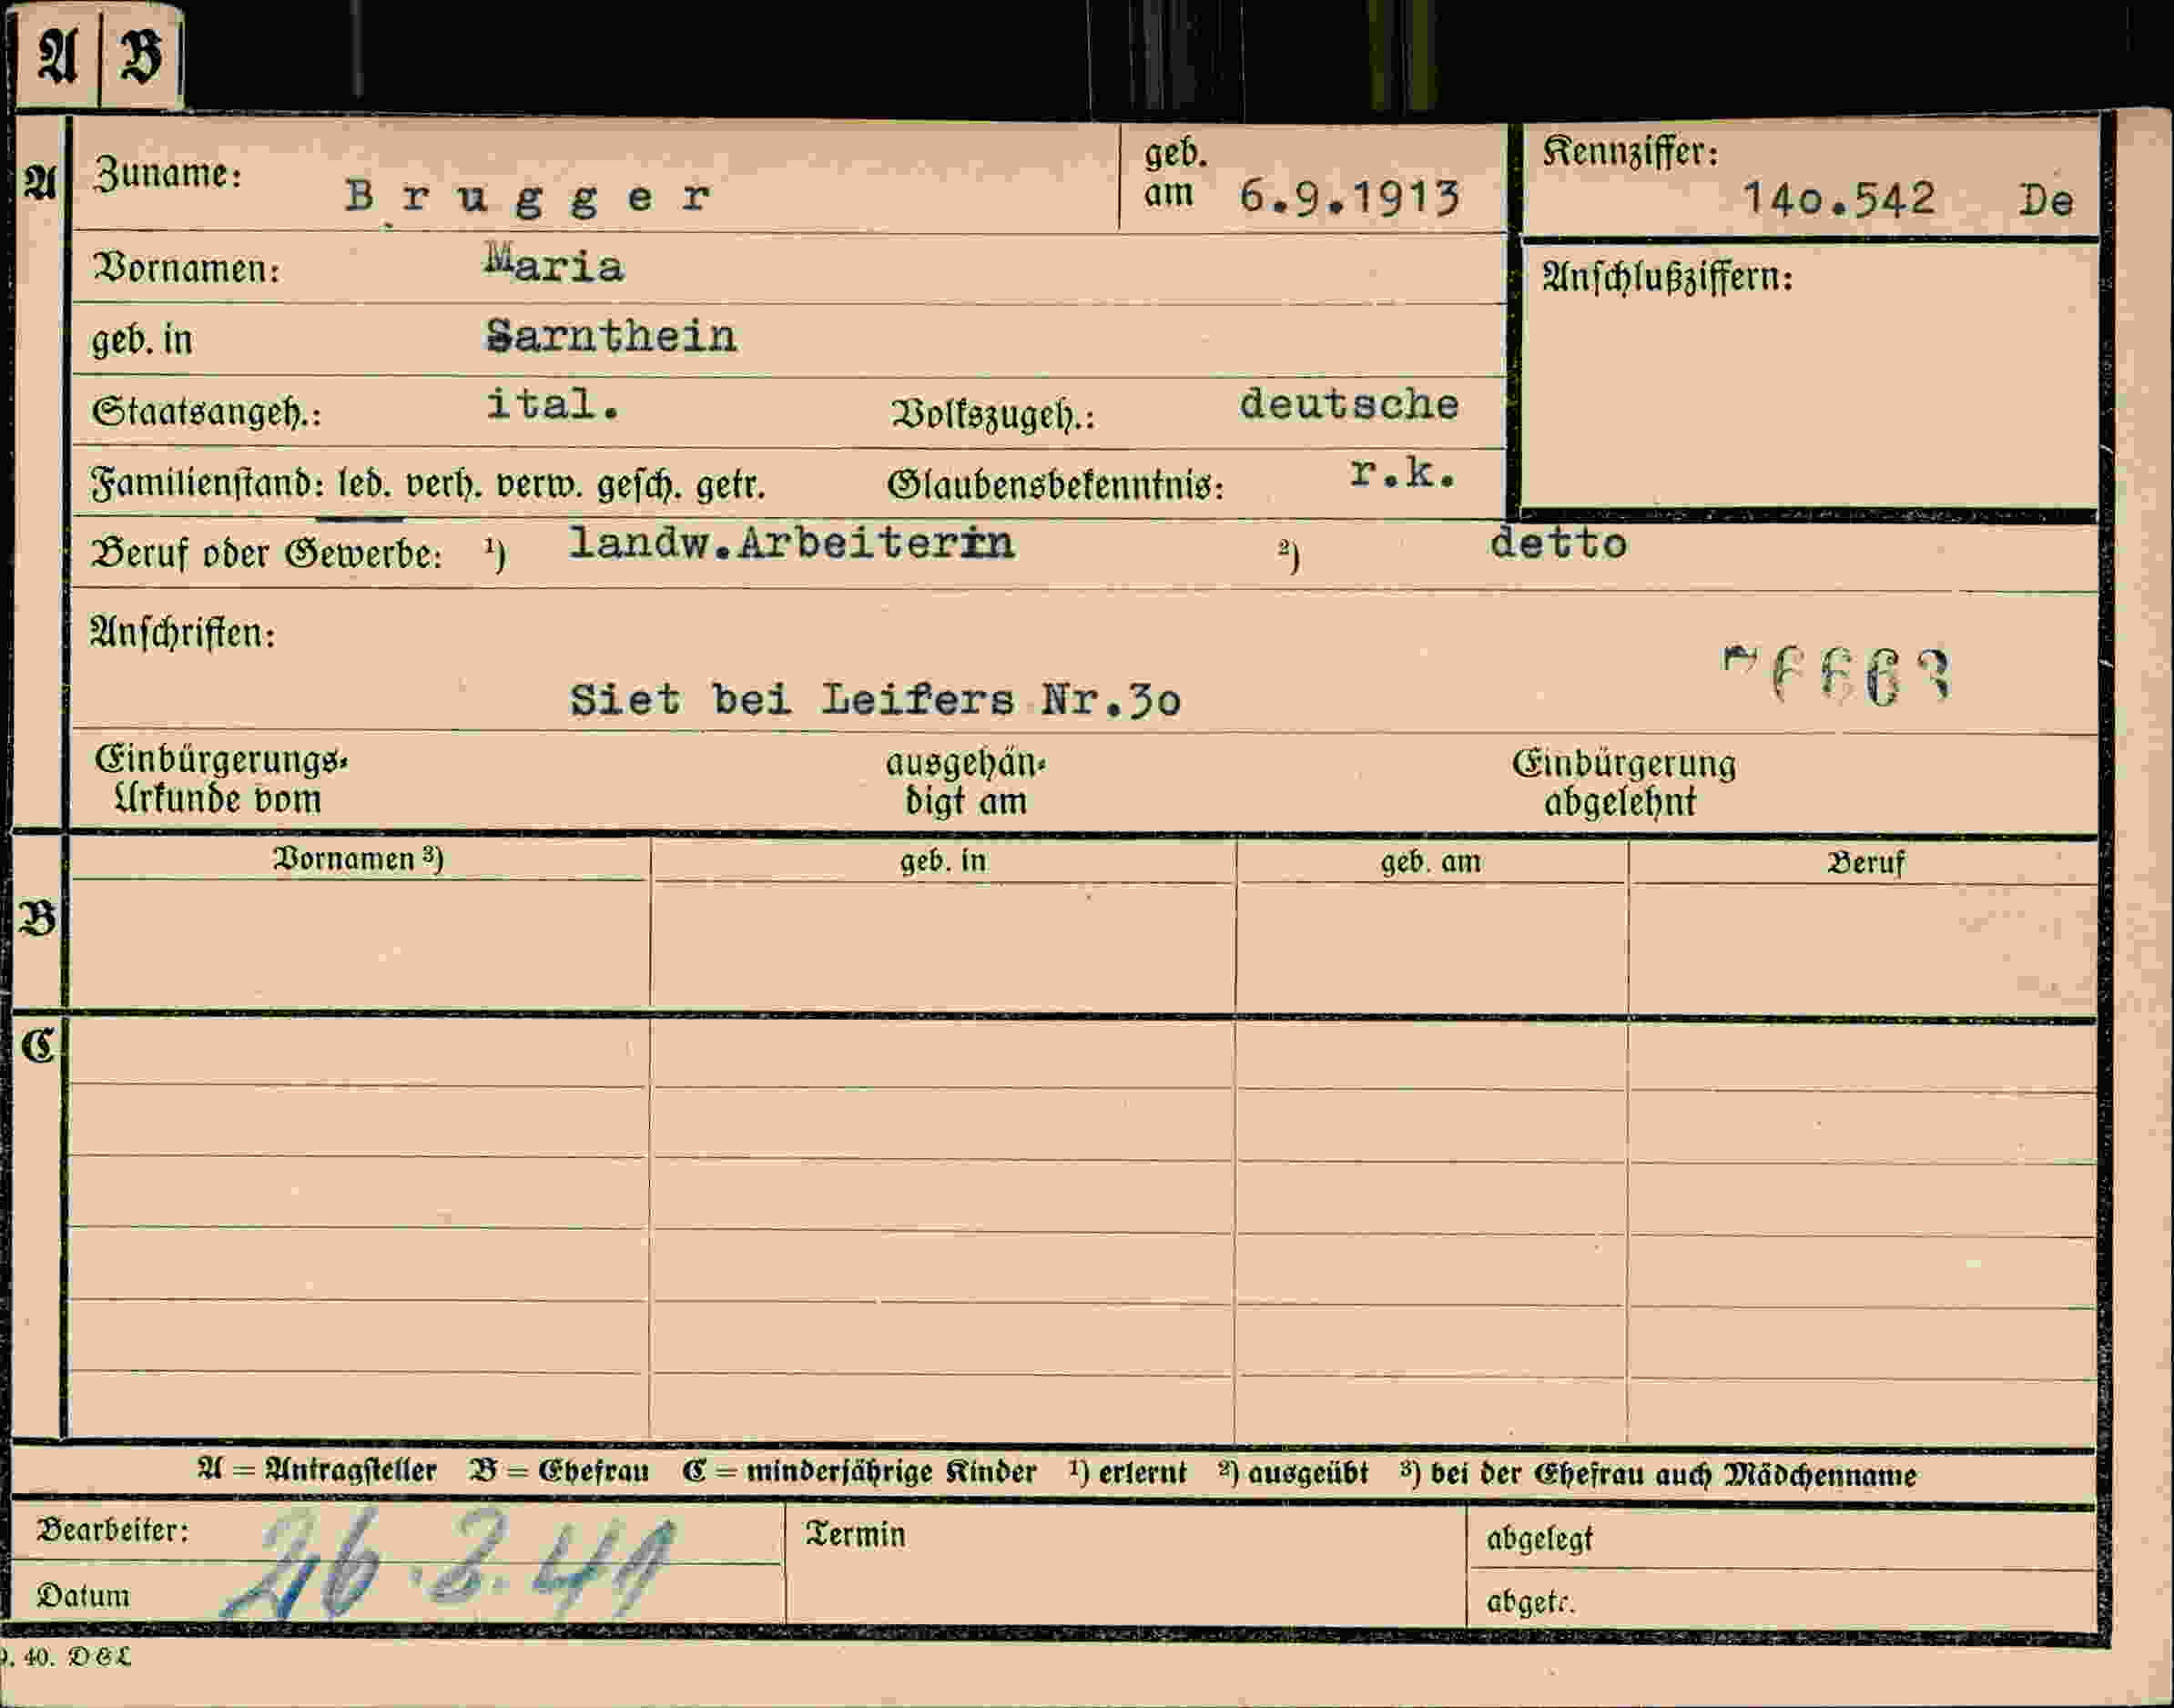 A B
A
Zuname: Brugger geb. am 6.9.1913 Kennziffer: 14o.542 De
Vornamen: Maria Anschlußziffern:
geb. in Sarnthein
Staatsangeh.: ital. Volkszugeh.: deutsche
Familienstand: led. verh. verw. gesch. getr. Glaubensbekenntnis: r.k.
Beruf oder Gewerbe: ¹) landw.Arbeiterin ²) detto
Anschriften:
Siet bei Leifers Nr.3o
Einbürgerungs- ausgehän- Einbürgerung
Urkunde vom digt am abgelehnt
Vornamen ³) geb. in geb. am Beruf
B
C
A = Antragsteller B = Ehefrau C = minderjährige Kinder ¹) erlernt ²) ausgeübt ³) bei der Ehefrau auch Mädchenname
Bearbeiter: Termin abgelegt
Datum abgetr.
40. DEL